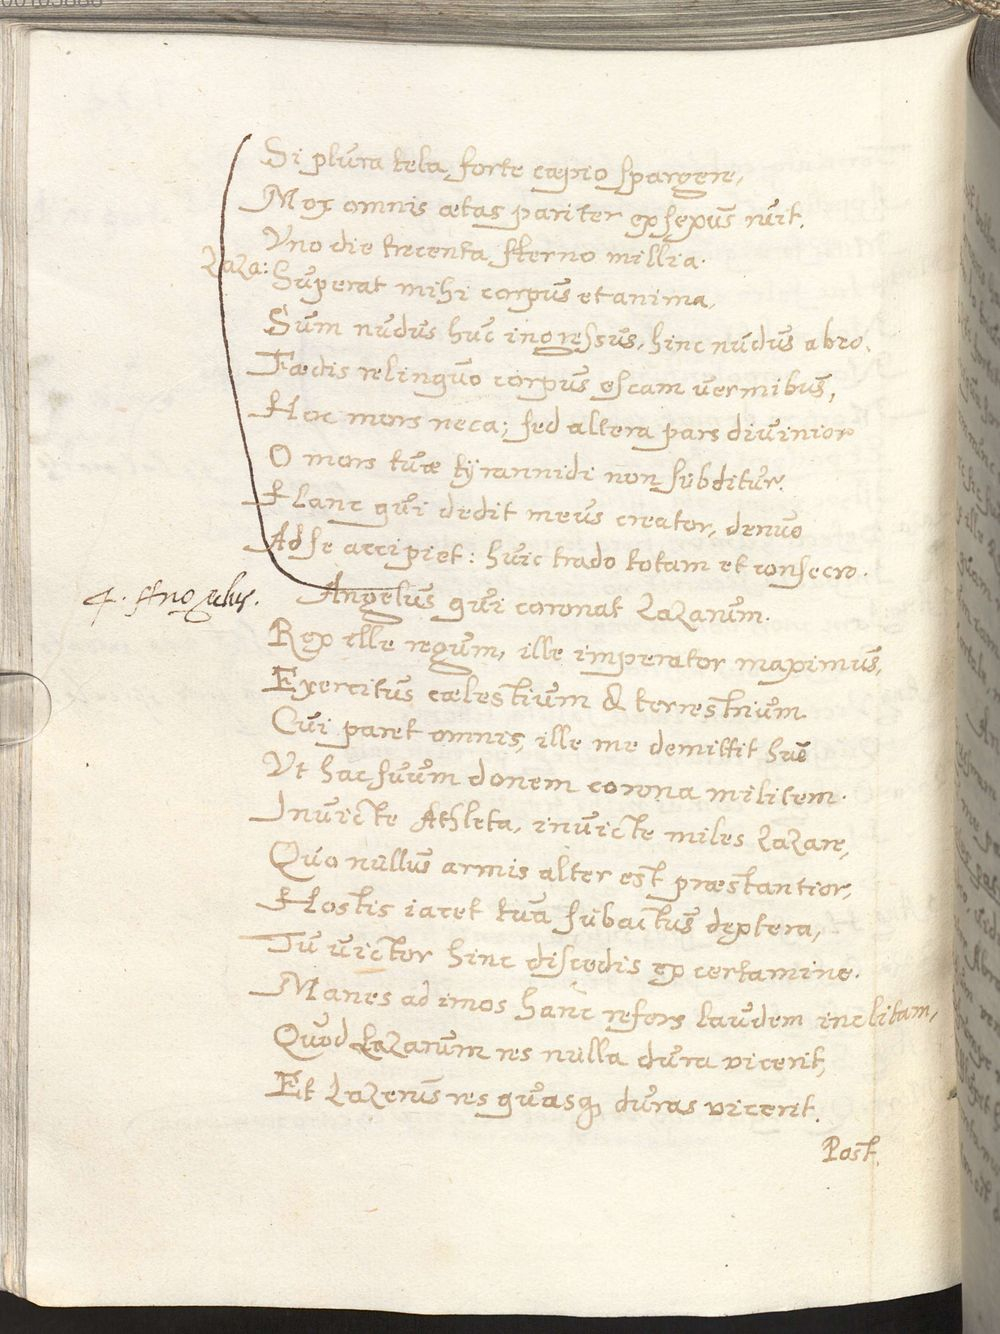 Si plura tela forte capio spargere,
Mox omnis ætas pariter exsexus ruit.
Vno die trecenta sterno millia.
LaZa: Superat mihi corpus et anima,
Sum nudus huc ingressus, hinc nudus abeo.
Fædis relinquo corpus escam vermibus,
Hoc mors neca; sed altera pars diuinior
O mors tuæ tyrannidi non subditur.
Hanc qui dedit meus creator, denuo
Ad se accipiet: huic trado totam et consecro.
4. Angelus qui coronat LaZarum.
Rex ille regum, ille imperator maximus,
Exercitus cælestium & terrestrium
Cui paret omnis, ille me demittit huc
Vt hac suum donem corona militem.
Inuicte Athleta, inuicte miles LaZare,
Quo nullus armis alter est præstantior,
Hostis iacet tua subactus dextera,
Tu victor hinc discedis ex certamine.
Manes ad imos hanc refers laudem inclitam,
Quod LaZarum res nulla dura vicerit,
Et LaZerus res quasq, duras vicerit.
Post